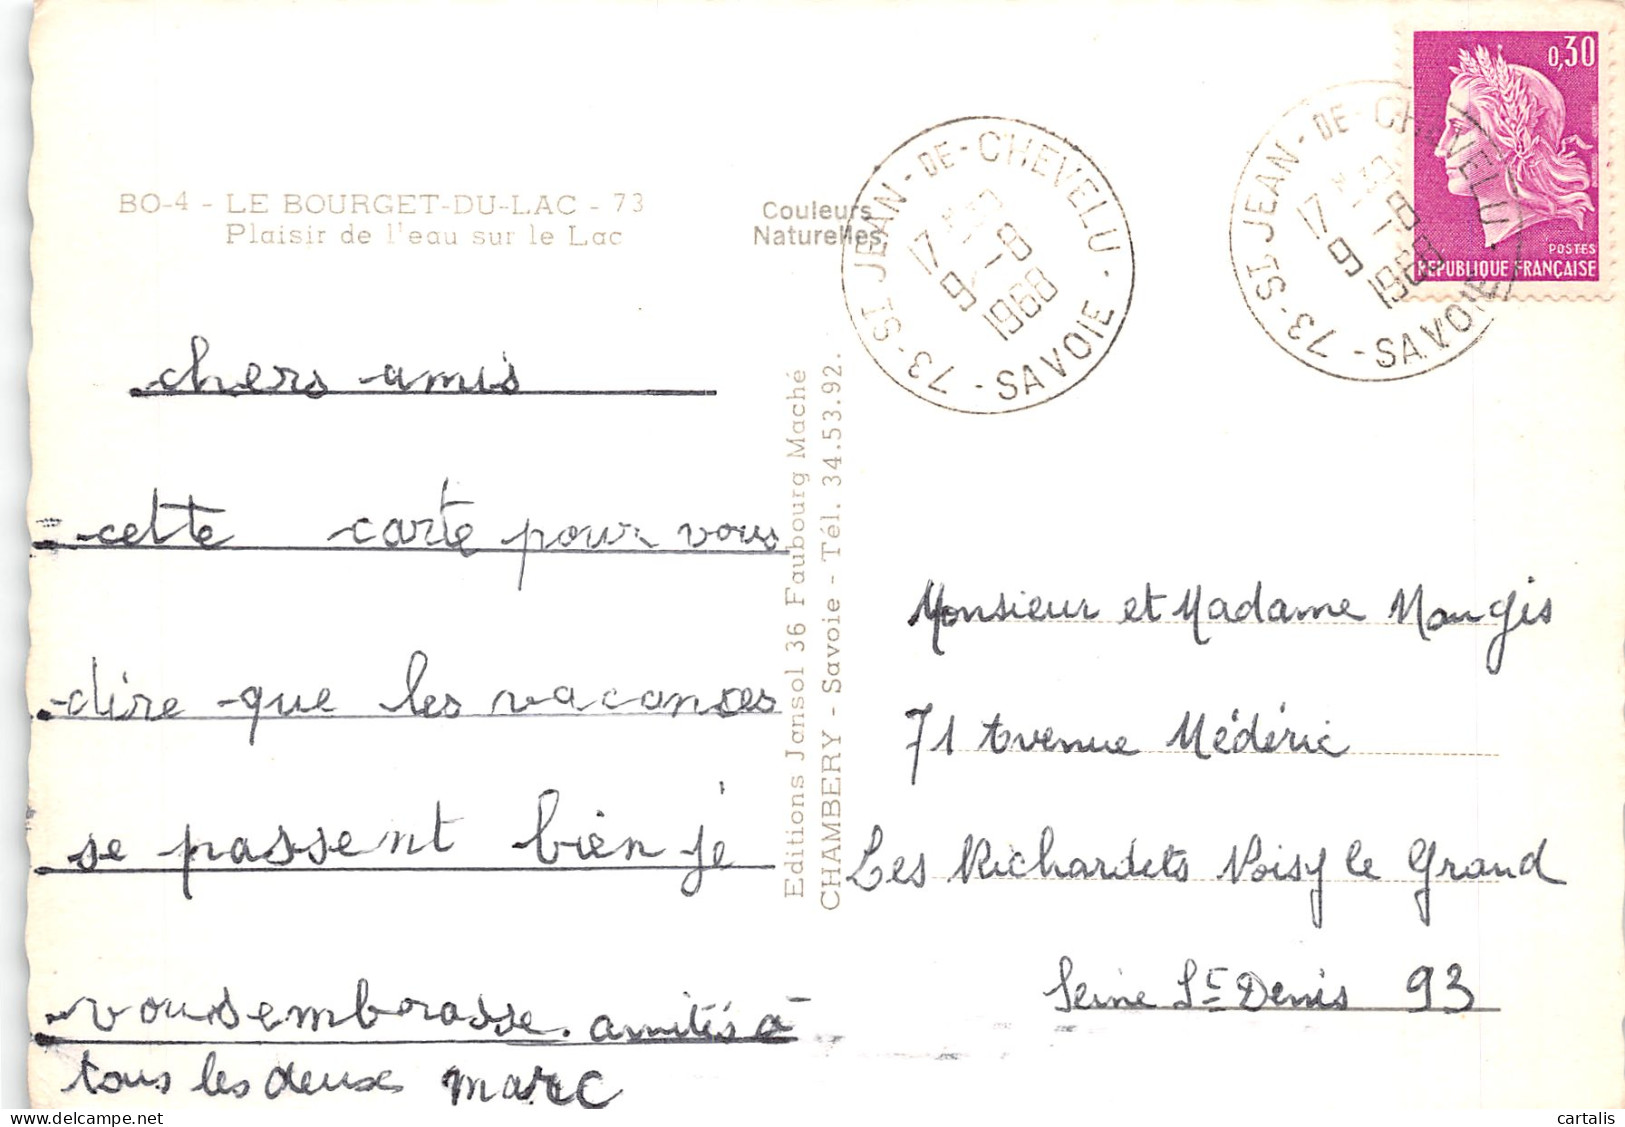 BO-4 - LE BOURGET-DU-LAC - 73
Plaisir de l'eau sur le Lac
Couleurs
Naturelles
chers amis
cette carte pour vous
dire que les vacances
se passent bien je
vous embrasse. amitiés à
tous les deux marc
Editions Jansol 36 Faubourg Maché
CHAMBERY - Savoie - Tél. 34.53.92.
73 - ST JEAN - DE - CHEVELU - SAVOIE
17
9 - 8
1968
73 - ST JEAN - DE - CHEVELU - SAVOIE
17
9 - 8
1968
0,30
POSTES
REPUBLIQUE FRANÇAISE
Monsieur et Madame Mougis
71 Avenue Médéric
Les Richardets Noisy le Grand
Seine St Denis 93
cartalis